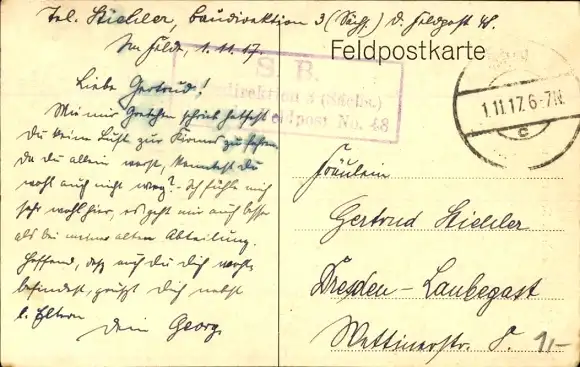 Tel. Stiehler, Baudirektion 3 (Sächs.) D. Feldpost 48.
Im Felde, 1.11.17.
Feldpostkarte
S. B.
direktion 3 (Sächs.)
Feldpost No. 48
1.11.17.6-7N.
c
Liebe Gertrud!
Wie mir Gretchen schrieb hattest
Du keine Lust zur Kirmes zu fahren
da du allein warst, konntest du
wohl auch nicht weg? Ich fühle mich
sehr wohl hier, es geht mir auch besser
als bei meiner alten Abteilung.
Hoffend, daß auch du Dich wohl
befindest, grüßt Dich nebst
l. Eltern
Dein Georg.
Fräulein
Gertrud Stiehler
Dresden-Laubegast
Wettinerstr. 5.
1,-